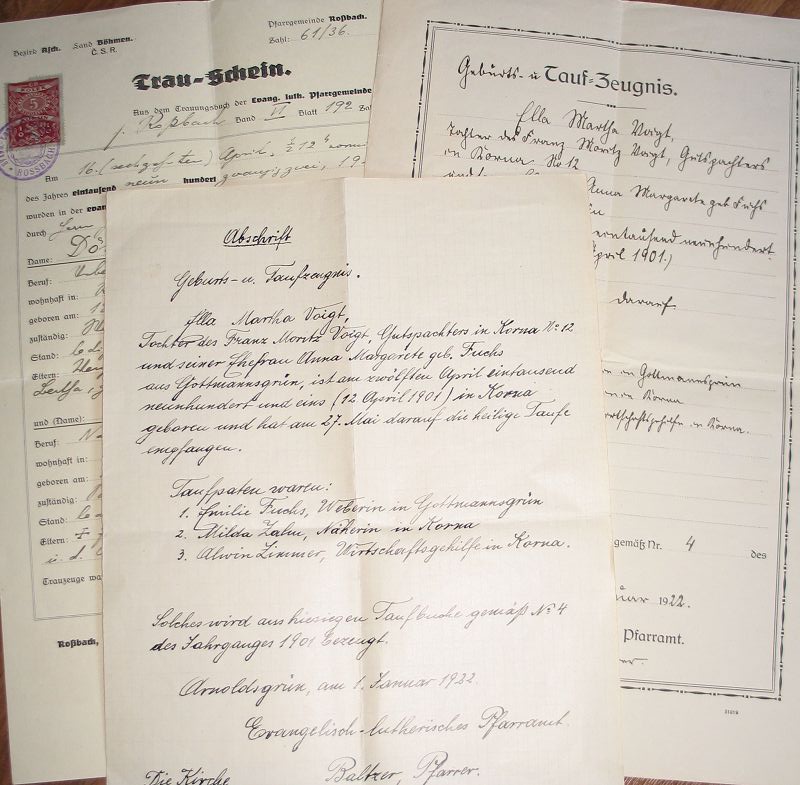 Bezirk Asch. Land Böhmen.
Č. S. R.
Pfarrgemeinde Roßbach.
Zahl: 61/36.
Trau-Schein.
Aus dem Trauungsbuch der Evang. luth. Pfarrgemeinde
Roßbach Band VI Blatt 192
5
ROSSBACH
Am 16. (sechzehnten) April
des Jahres eintausend neun hundert zwanzig zwei, 19
wurden in der
durch Herrn
Name:
Beruf:
wohnhaft in:
geboren am:
zuständig:
Stand:
Eltern:
und (Name):
Beruf:
wohnhaft in:
geboren am:
zuständig:
Stand:
Eltern:
Trauzeuge
Roßbach,
Geburts- u Tauf-Zeugnis.
Ella Martha Voigt,
Tochter des Franz Moritz Voigt, Gutspachters
in Korna No 12
Anna Margarete geb Fuchs
eintausend neunhundert
April 1901.)
darauf
in Gottmannsgrün
Korna
in Korna.
gemäß Nr. 4 des
1922.
Pfarramt.
Abschrift
Geburts- u. Taufzeugnis.
Ella Martha Voigt,
Tochter des Franz Moritz Voigt, Gutspachters in Korna No 12
und seiner Ehefrau Anna Margarete geb. Fuchs
aus Gottmannsgrün, ist am zwölften April eintausend
neunhundert und eins (12 April 1901) in Korna
geboren und hat am 27. Mai darauf die heilige Taufe
empfangen.
Taufpaten waren:
1. Emilie Fuchs, Weberin in Gottmannsgrün
2. Milda Zahn, Näherin in Korna
3. Alwin Zimmer, Wirtschaftsgehilfe in Korna.
Solches wird aus hiesigen Taufbuche gemäß No 4
des Jahrganges 1901 bezeugt.
Arnoldsgrün, am 1. Januar 1922.
Evangelisch-lutherisches Pfarramt.
Die Kirche Baltzer, Pfarrer.